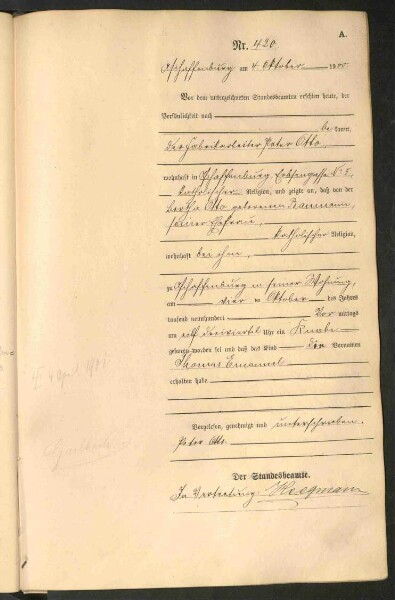 A.
Nr. 420
Aschaffenburg am 4. Oktober 1905
Vor dem unterzeichneten Standesbeamten erschien heute, der
Persönlichkeit nach
be kannt,
der Fabrikarbeiter Peter Otto,
wohnhaft in Aschaffenburg, Erbsengasse Nr. 5,
katholischer Religion, und zeigte an, daß von der
Bertha Otto geborenen Baumann,
seiner Ehefrau,
katholischer Religion,
wohnhaft bei ihm,
zu Aschaffenburg in seiner Wohnung,
am vier ten Oktober des Jahres
tausend neunhundert Vor mittags
um elf dreiviertel Uhr ein Knabe
geboren worden sei und daß das Kind die Vornamen
Thomas Emanuel
erhalten habe
Vorgelesen, genehmigt und unterschrieben.
Peter Otto.
Der Standesbeamte.
In Vertretung: Hegmann
April